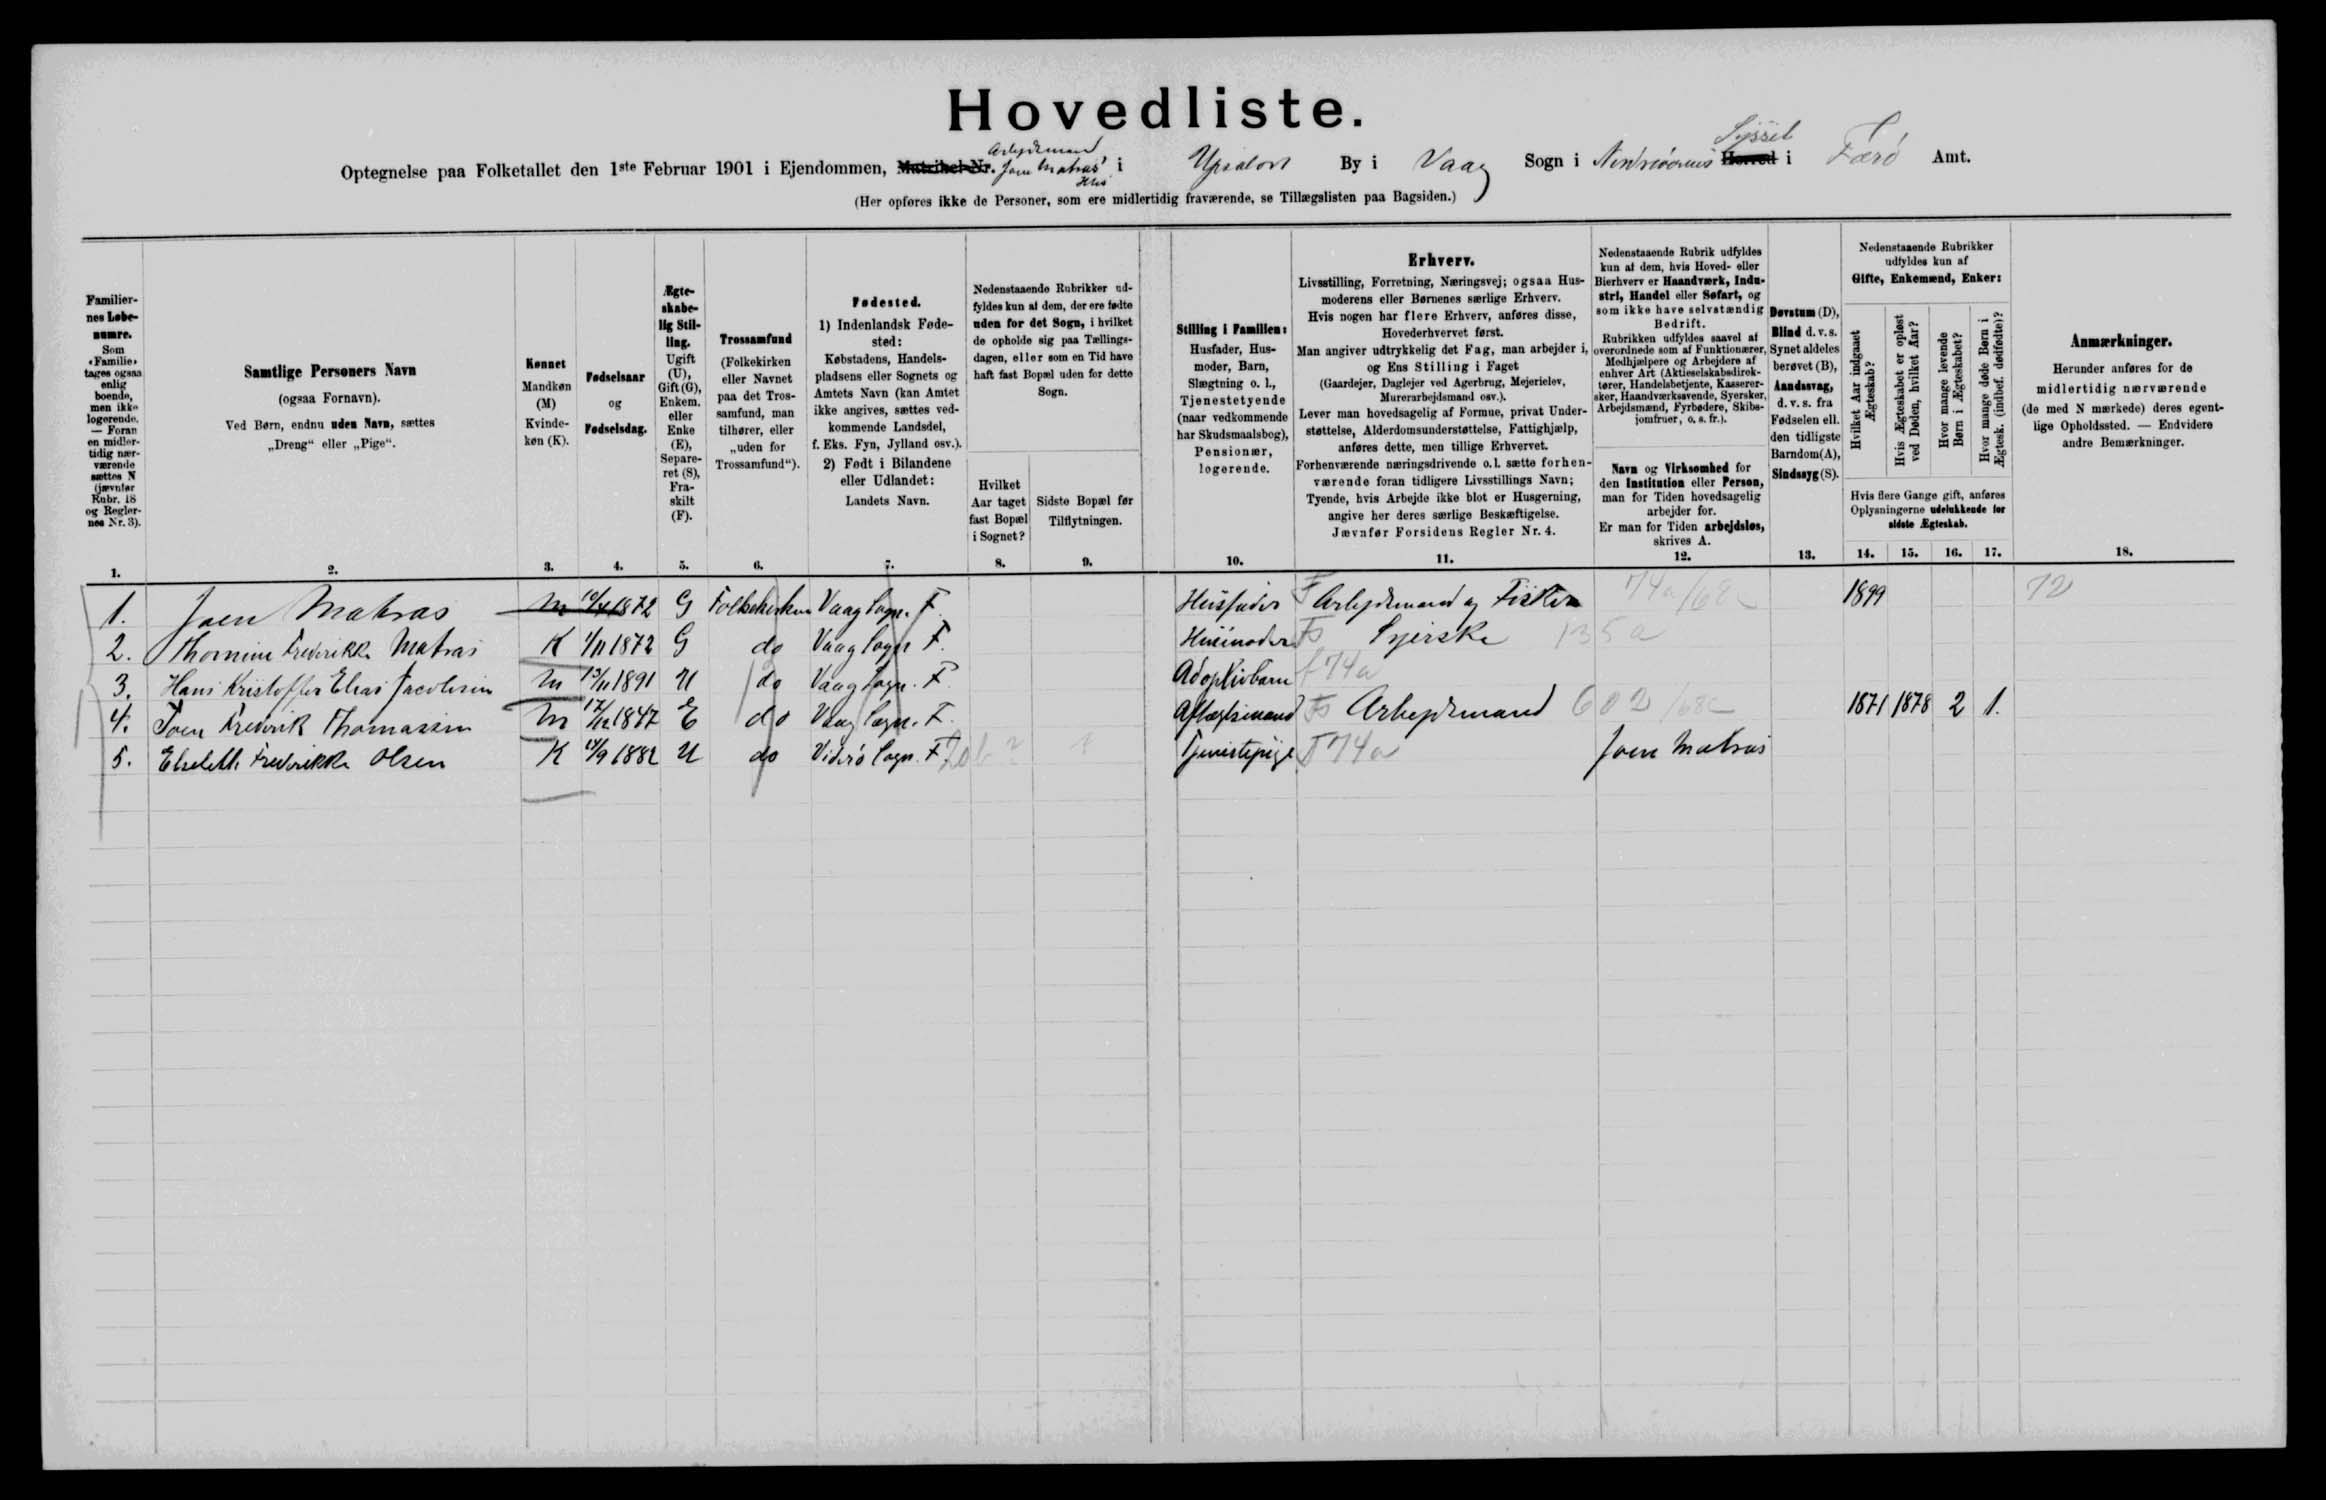 Hovedliste.
Optegnelse paa Folketallet den 1ste Februar 1901 i Ejendommen, Matrikel-Nr. Arbejdsmand Joen Matras' Hus i Upsalon By i Vaag Sogn i Nordreöernes Herred Syssel i Færö Amt.
(Her opføres ikke de Personer, som ere midlertidig fraværende, se Tillægslisten paa Bagsiden.)
Familiernes Løbenumre.
Som «Familie» tages ogsaa enlig boende, men ikke logerende. — Foran en midlertidig nærværende sættes N (jævnfør Rubr. 18 og Reglernes Nr. 3).
Samtlige Personers Navn
(ogsaa Fornavn).
Ved Børn, endnu uden Navn, sættes
„Dreng“ eller „Pige“.
Kønnet
Mandkøn (M)
Kvindekøn (K).
Fødselsaar
og
Fødselsdag.
Ægteskabelig Stilling.
Ugift (U), Gift (G), Enkem. eller Enke (E), Separeret (S), Fraskilt (F).
Trossamfund
(Folkekirken eller Navnet paa det Trossamfund, man tilhører, eller „uden for Trossamfund“).
Fødested.
1) Indenlandsk Fødested:
Købstadens, Handelspladsens eller Sognets og Amtets Navn (kan Amtet ikke angives, sættes vedkommende Landsdel, f. Eks. Fyn, Jylland osv.).
2) Født i Bilandene eller Udlandet:
Landets Navn.
Nedenstaaende Rubrikker udfyldes kun af dem, der ere fødte uden for det Sogn, i hvilket de opholde sig paa Tællingsdagen, eller som en Tid have haft fast Bopæl uden for dette Sogn.
Hvilket Aar taget fast Bopæl i Sognet?
Sidste Bopæl før Tilflytningen.
Stilling i Familien:
Husfader, Husmoder, Barn, Slægtning o. l., Tjenestetyende (naar vedkommende har Skudsmaalsbog), Pensionær, logerende.
Erhverv.
Livsstilling, Forretning, Næringsvej; ogsaa Husmoderens eller Børnenes særlige Erhverv.
Hvis nogen har flere Erhverv, anføres disse, Hovederhvervet først.
Man angiver udtrykkelig det Fag, man arbejder i, og Ens Stilling i Faget
(Gaardejer, Daglejer ved Agerbrug, Mejerielev, Murerarbejdsmand osv.).
Lever man hovedsagelig af Formue, privat Understøttelse, Alderdomsunderstøttelse, Fattighjælp, anføres dette, men tillige Erhvervet.
Forhenværende næringsdrivende o. l. sætte forhenværende foran tidligere Livsstillings Navn;
Tyende, hvis Arbejde ikke blot er Husgerning, angive her deres særlige Beskæftigelse.
Jævnfør Forsidens Regler Nr. 4.
Nedenstaaende Rubrik udfyldes kun af dem, hvis Hoved- eller Bierhverv er Haandværk, Industri, Handel eller Søfart, og som ikke have selvstændig Bedrift.
Rubrikken udfyldes saavel af overordnede som af Funktionærer, Medhjælpere og Arbejdere af enhver Art (Aktieselskabsdirektører, Handelsbetjente, Kasserersker, Haandværkssvende, Syersker, Arbejdsmænd, Fyrbødere, Skibsjomfruer, o. s. fr.).
Navn og Virksomhed for den Institution eller Person, man for Tiden hovedsagelig arbejder for.
Er man for Tiden arbejdsløs, skrives A.
Døvstum (D),
Blind d. v. s. Synet aldeles berøvet (B),
Aandssvag, d. v. s. fra Fødselen ell. den tidligste Barndom (A),
Sindssyg (S).
Nedenstaaende Rubrikker udfyldes kun af
Gifte, Enkemænd, Enker:
Hvilket Aar indgaaet Ægteskab?
Hvis Ægteskabet er opløst ved Døden, hvilket Aar?
Hvor mange levende Børn i Ægteskabet?
Hvor mange døde Børn i Ægtesk. (indbef. dødfødte)?
Hvis flere Gange gift, anføres Oplysningerne udelukkende for sidste Ægteskab.
Anmærkninger.
Herunder anføres for de midlertidig nærværende (de med N mærkede) deres egentlige Opholdssted. — Endvidere andre Bemærkninger.
1. 2. 3. 4. 5. 6. 7. 8. 9. 10. 11. 12. 13. 14. 15. 16. 17. 18.
1. Joen Matras M 1872 G Folkekirken Vaag Sogn. F. Husfader F Arbejdsmand og Fisker 74a/68c 1899 72
2. Thomine Frederikke Matras K 1/11 1872 G do Vaag Sogn F. Husmoder Fs Syerske 135a
3. Hans Kristoffer Elias Jacobsen M 13/11 1891 U do Vaag Sogn. F. Adoptivbarn f 74a
4. Joen Frederik Thomassen M 17/12 1847 E do Vaag Sogn. F. Aftægtsmand Fs Arbejdsmand 602/68c 1871 1878 2 1.
5. Elsebeth Frederikke Olsen K 1882 U do Viderö Sogn. F. Tjenestepige T 74a Joen Matras